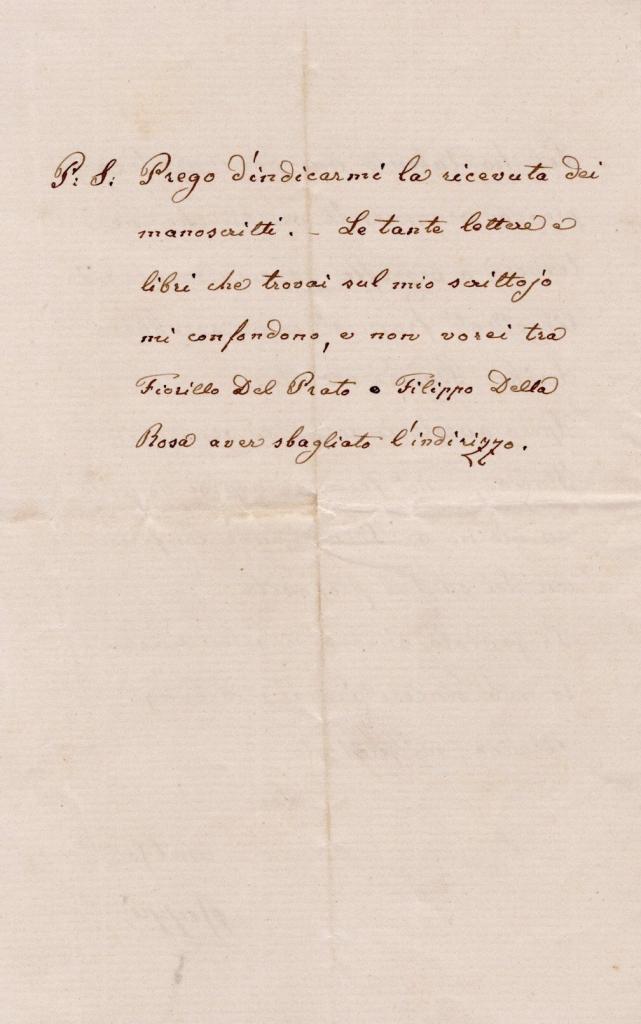 P: S: Prego d'indicarmi la ricevuta dei
manoscritti. – Le tante lettere e
libri che trovai sul mio scrittojo
mi confondono, e non vorei tra
Fiorillo Del Prato e Filippo Della
Rosa aver sbagliato l'indirizzo.